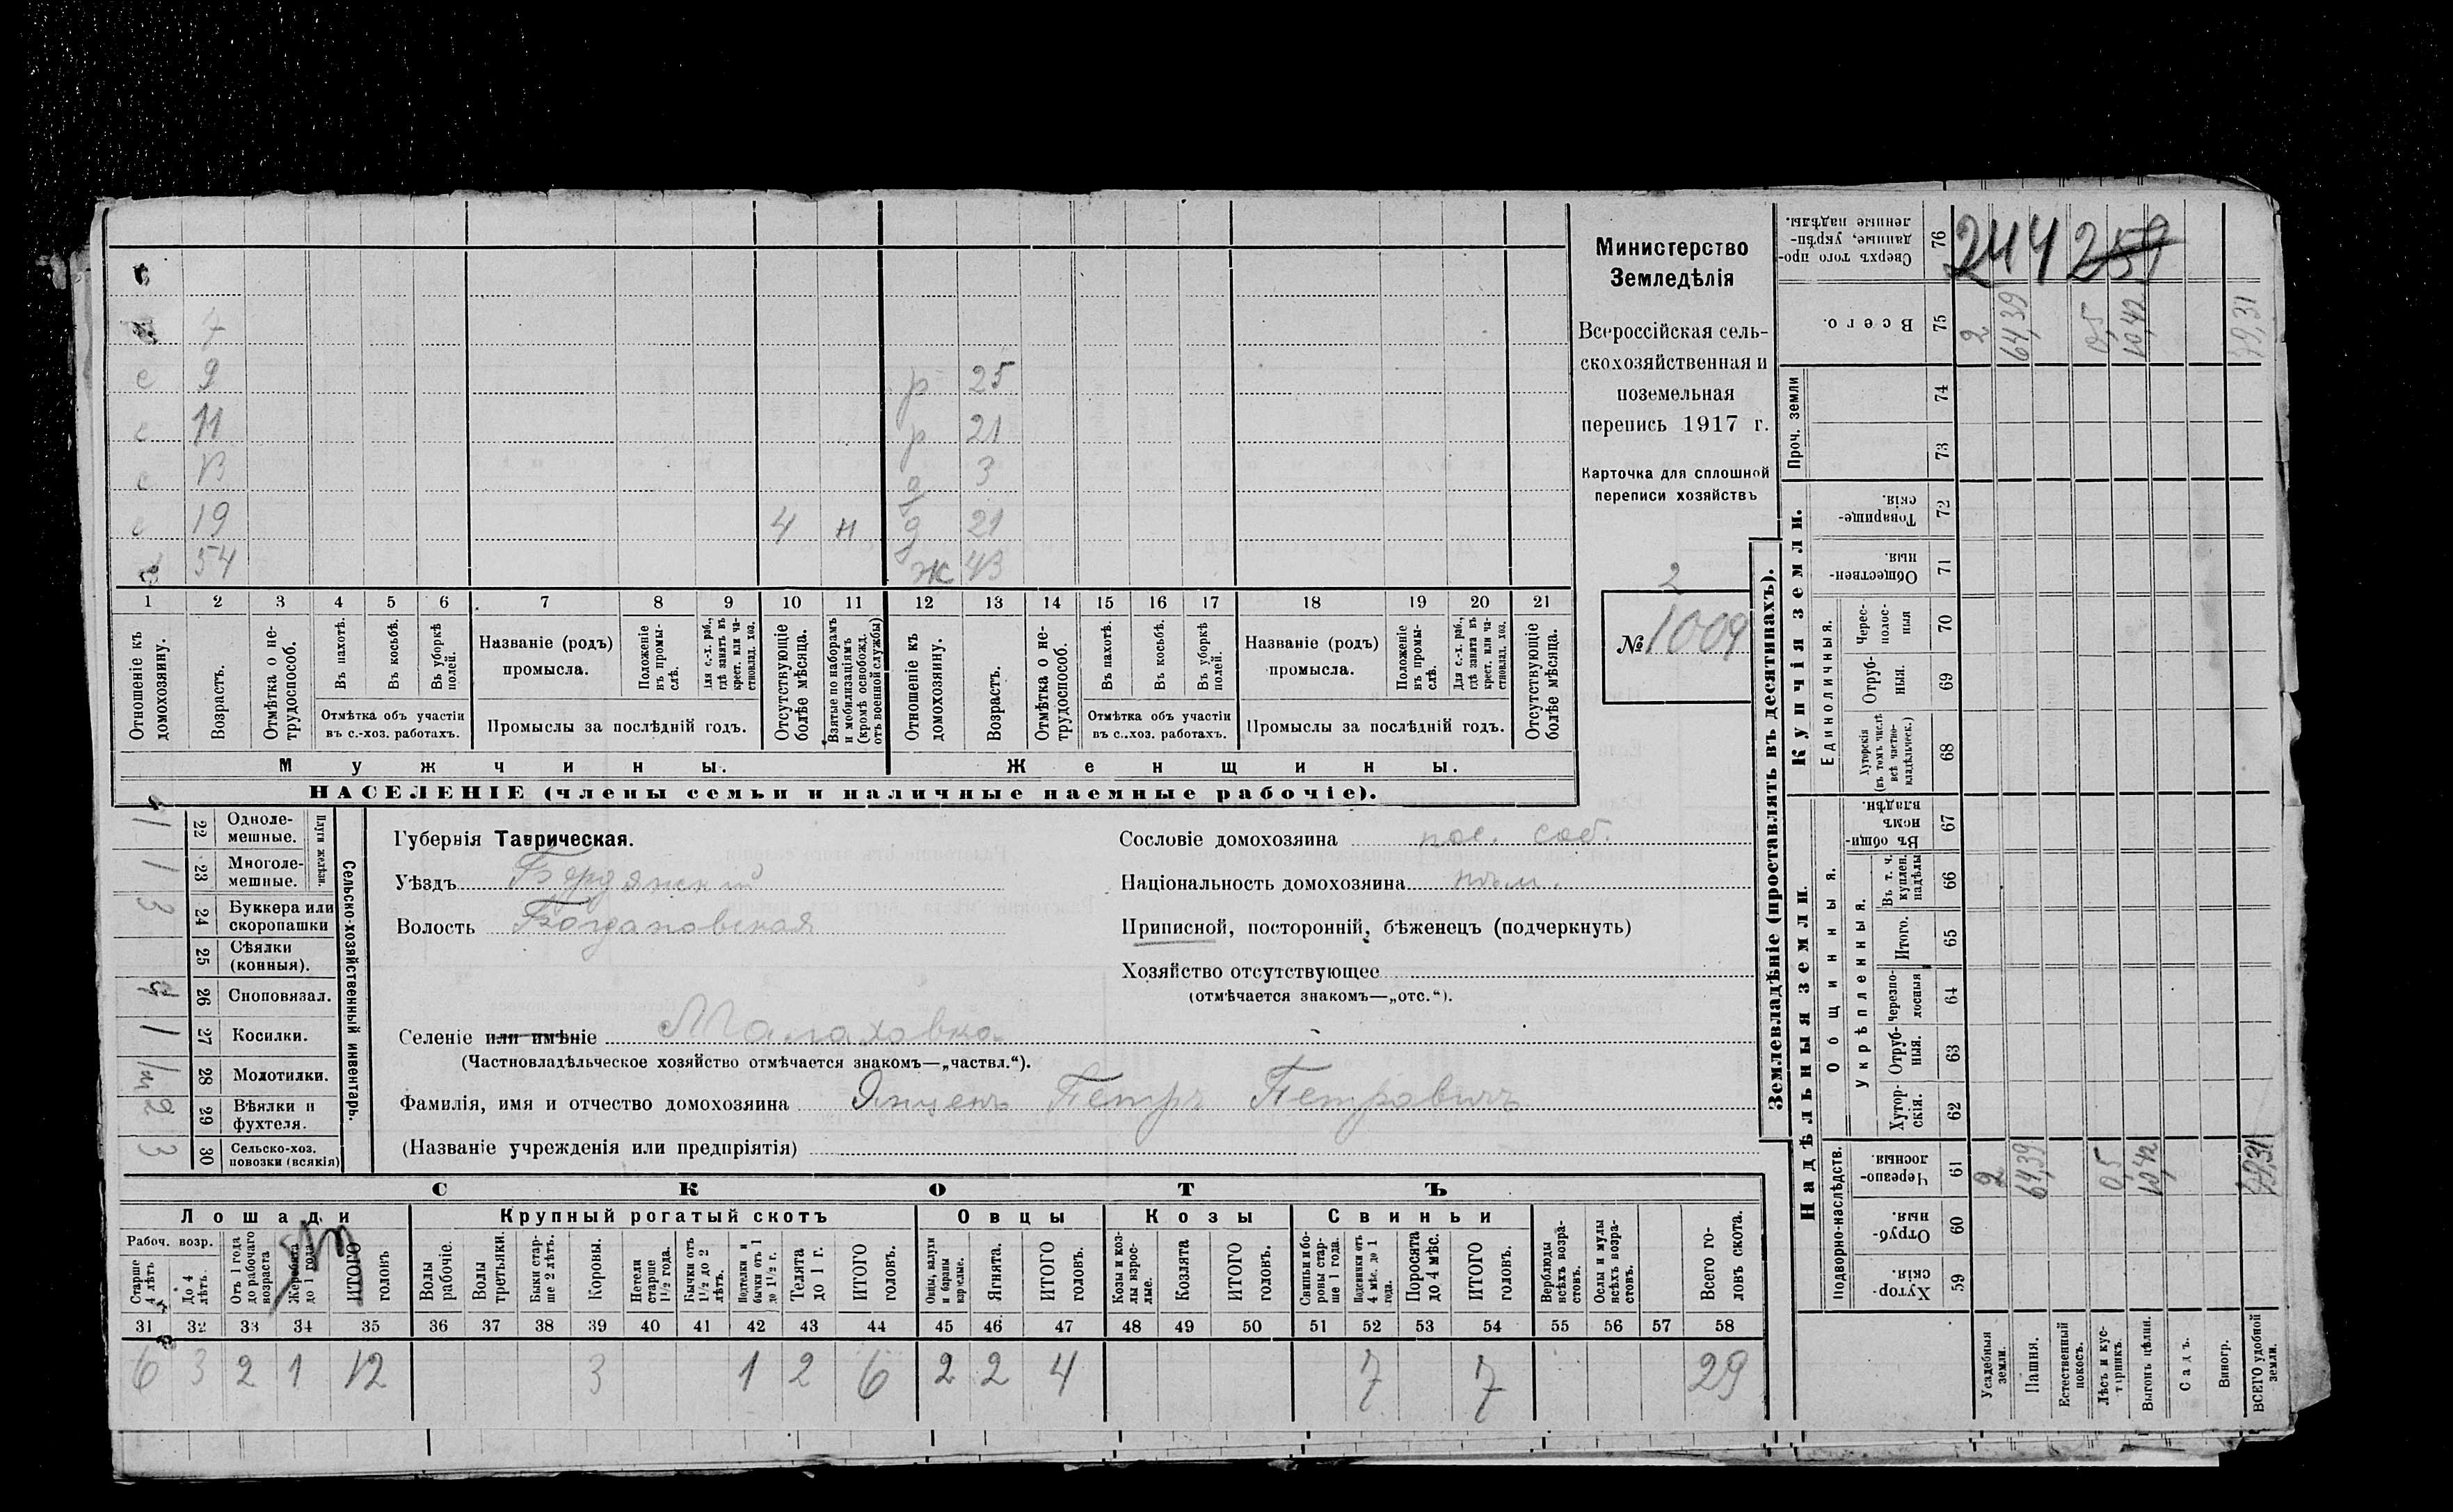 244 259
Министерство
Земледѣлія
Всероссійская сель-
скохозяйственная и
поземельная
перепись 1917 г.
Карточка для сплошной
переписи хозяйствъ
2
№ 1009
7
с 9 р 25
с 11 р 21
с 13 д 3
с 19 4 н д 21
54 ж 43
1 2 3 4 5 6 7 8 9 10 11 12 13 14 15 16 17 18 19 20 21
Отношеніе къ домохозяину.
Возрастъ.
Отмѣтка о не-трудоспособ.
Въ пахотѣ.
Въ косьбѣ.
Въ уборкѣ полей.
Отмѣтка объ участіи
въ с.-хоз. работахъ.
Названіе (родъ)
промысла.
Положеніе въ промы-слѣ.
Для с.-х. раб., гдѣ занятъ въ крест. или ча-стновлад. хоз.
Промыслы за послѣдній годъ.
Отсутствующіе болѣе мѣсяца.
Взятые по наборамъ и мобилизаціямъ (кромѣ освобожд. отъ военной службы)
Отношеніе къ домохозяину.
Возрастъ.
Отмѣтка о не-трудоспособ.
Въ пахотѣ.
Въ косьбѣ.
Въ уборкѣ полей.
Отмѣтка объ участіи
въ с..хоз. работахъ.
Названіе (родъ)
промысла.
Положеніе въ промы-слѣ.
Для с.-х. раб., гдѣ занята въ крест. или ча-стновлад. хоз.
Промыслы за послѣдній годъ.
Отсутствующіе болѣе мѣсяца.
Мужчины. Женщины.
НАСЕЛЕНІЕ (члены семьи и наличные наемные рабочіе).
Сельско-хозяйственный инвентарь.
Плуги желѣзн.
1 22 Одноле-мешные.
1 23 Многоле-мешные.
3 24 Буккера или скоропашки
25 Сѣялки (конныя).
26 Сноповязал.
1 27 Косилки.
28 Молотилки.
2 29 Вѣялки и фухтеля.
3 30 Сельско-хоз. повозки (всякія)
Губернія Таврическая.
Уѣздъ Бердянскій
Волость Богдановская
Сословіе домохозяина пос. соб.
Національность домохозяина нѣм.
Приписной, посторонній, бѣженецъ (подчеркнуть)
Хозяйство отсутствующее
(отмѣчается знакомъ—„отс.“).
Селеніе или имѣніе Малаховка
(Частновладѣльческое хозяйство отмѣчается знакомъ—„частвл.“).
Фамилія, имя и отчество домохозяина Янценъ Петръ Петровичъ
(Названіе учрежденія или предпріятія)
СКОТЪ
Лошади Крупный рогатый скотъ Овцы Козы Свиньи
Рабоч. возр.
Старше 4 лѣтъ
До 4 лѣтъ.
Отъ 1 года до рабочаго возраста
Жеребята до 1 года
ИТОГО головъ
Волы рабочіе.
Волы третьяки.
Быки стар-ше 2 лѣтъ.
Коровы.
Нетели старше 1½ года.
Бычки отъ 1½ до 2 лѣтъ.
Подтелки и бычки отъ 1 до 1½ г.
Телята до 1 г.
ИТОГО головъ.
Овцы, валухи и бараны взрослые.
Ягнята.
ИТОГО головъ.
Козы и коз-лы взрос-лые.
Козлята
ИТОГО головъ.
Свиньи и бо-ровы стар-ше 1 года.
Подсвинки отъ 4 мѣс. до 1 года.
Поросята до 4 мѣс.
ИТОГО головъ.
Верблюды всѣхъ возра-стовъ.
Ослы и мулы всѣхъ возра-стовъ.
Всего го-ловъ скота.
31 32 33 34 35 36 37 38 39 40 41 42 43 44 45 46 47 48 49 50 51 52 53 54 55 56 57 58
6 3 2 1 12 3 1 2 6 2 2 4 7 7 29
Землевладѣніе (проставлять въ десятинахъ).
Надѣльныя земли. Купчія земли. Проч. земли
Подворно-наслѣдств. Общинныя. Единоличныя.
Укрѣпленныя.
Хутор-скія. 59
Отруб-ныя. 60
Черезпо-лосныя. 61
Хутор-скія. 62
Отруб-ныя. 63
Черезпо-лосныя 64
Итого. 65
Въ т. ч. куплен. надѣлы 66
Въ общин-номъ владѣн. 67
Хуторскія (въ томъ числѣ всѣ частно-владѣльческ.) 68
Отруб-ныя. 69
Черес-полос-ныя 70
Обществен-ныя. 71
Товарище-скія. 72
73
74
Всего. 75
Сверхъ того про-данные, укрѣп-ленные надѣлы. 76
Усадебныя земли. 2 2
Пашня. 64,39 64,39
Естественный покосъ.
Лѣсъ и кус-тарникъ. 0,5 0,5
Выгонъ цѣлин. 10,42 10,42
Садъ.
Виногр.
ВСЕГО удобной земли.